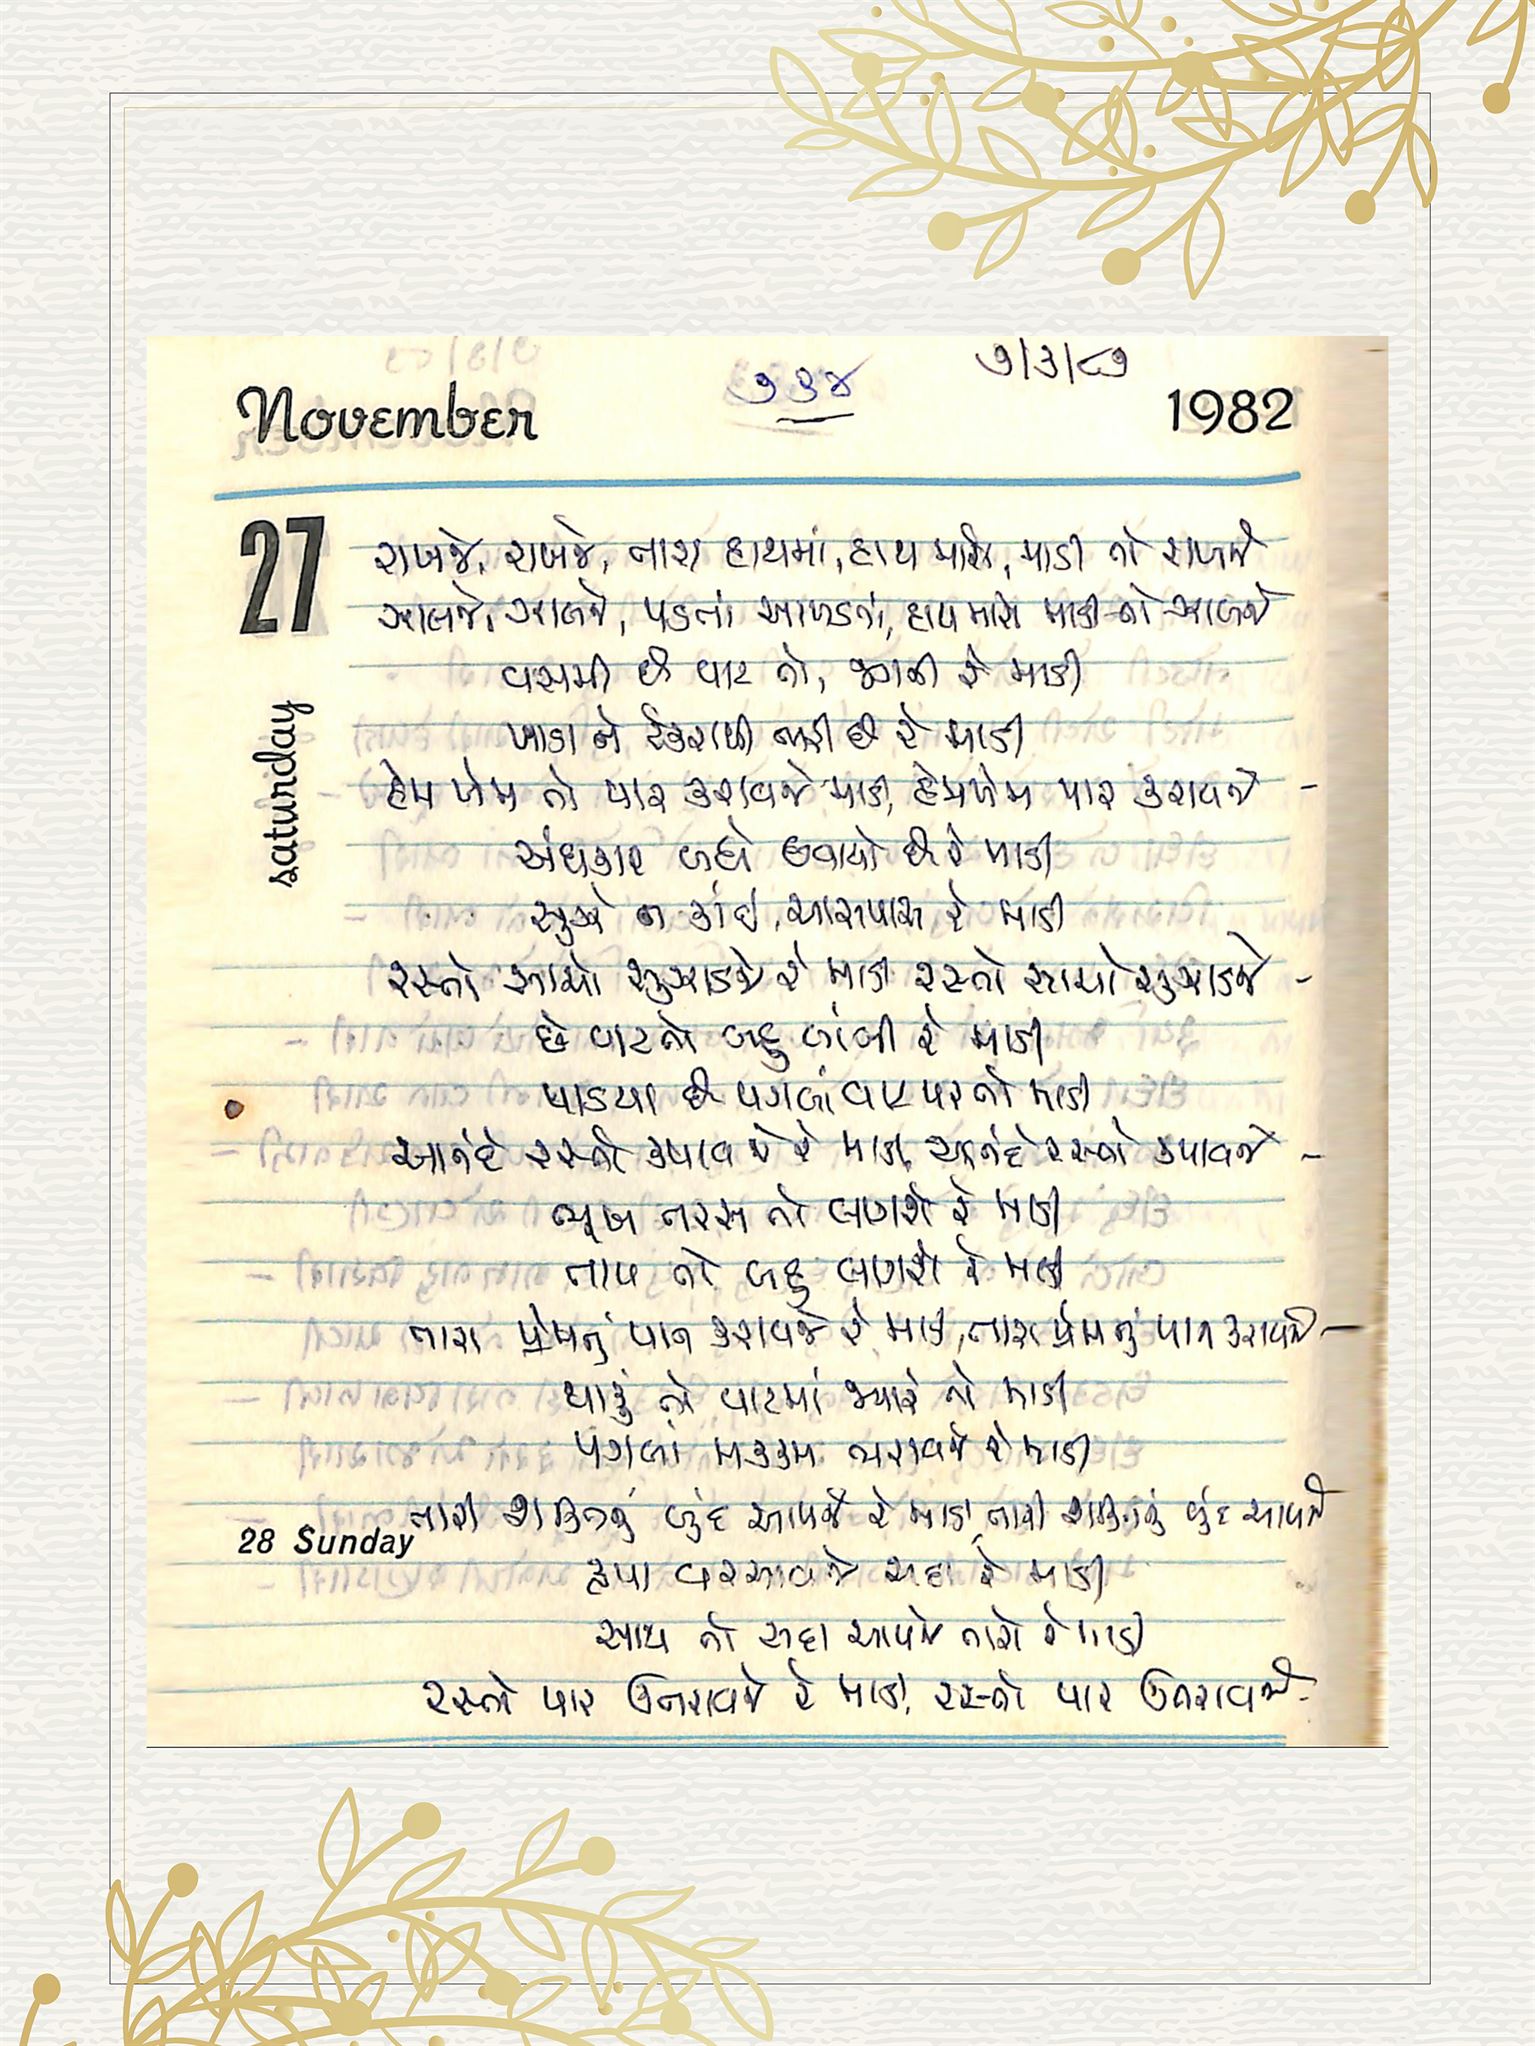 ૭/૩/૮૭
૭૩૪
November 1982
27
saturday
રાખજે, રાખજે, તારા હાથમાં, હાથ મારો, માડી તો રાખજે
ઝાલજે, ઝાલજે, પડતાં આખડતાં, હાથ મારો માડી તો ઝાલજે
વસમી છે વાટ તો, જાણી રે માડી
ખાડા ને ટેકરાથી ભરી છે રે માડી
હેમ ખેમ તો પાર કરાવજે માડી, હેમખેમ પાર કરાવજે -
અંધકાર બધે છવાયો છે રે માડી
સુઝે ન કાંઈ, આસપાસ રે માડી
રસ્તો સાચો સુઝાડજે રે માડી રસ્તો સાચો સુઝાડજે -
છે વાટ તો બહુ લાંબી રે માડી
પાડયા છે પગલાં વાટ પર તો માડી
આનંદે રસ્તો કપાવજે રે માડી, આનંદે રસ્તો કપાવજે -
ભૂખ તરસ તો લાગશે રે માડી
તાપ તો બહુ લાગશે રે માડી
તારા પ્રેમનું પાન કરાવજે રે માડી, તારા પ્રેમનું પાન કરાવજે -
થાકું જો વાટમાં જ્યારે તો માડી
પગલાં મક્કમ ભરાવજે રે માડી
તારી શક્તિનું બુંદ આપજે રે માડી, તારી શક્તિનું બુંદ આપજે
28 Sunday
કૃપા વરસાવજે સદા રે માડી
સાથ તો સદા આપજે તારો રે માડી
રસ્તો પાર ઉતરાવજે રે માડી, રસ્તો પાર ઉતરાવજે -